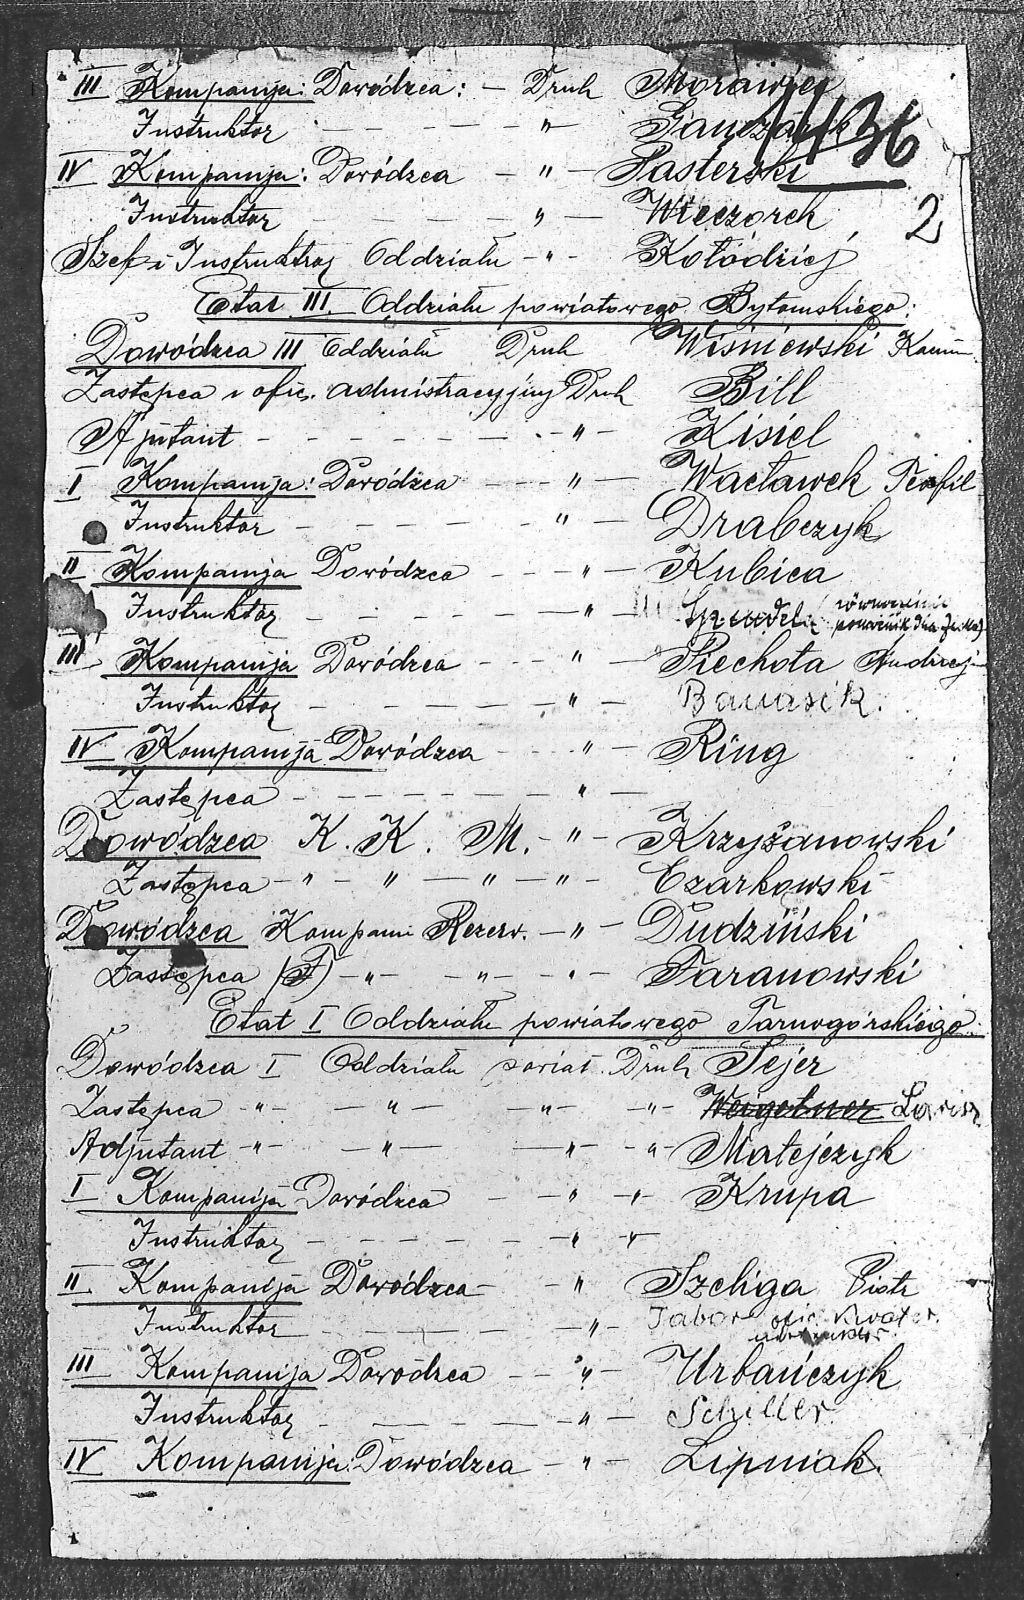 III Kompanija: Dowódzca: - Druh Morawiec
1436
Instruktor - - - - " - Ganczarek
IV Kompanija: Dowódzca - " - Pasterski
Instruktor - - - - " - Wieczorek
2
Szef i Instruktor Oddziału - " - Kołodziej
Etat III. Oddziału powiatowego Bytomskiego:
Dowódzca III Oddziału Druh Wiśniewski
Zastępca i ofic. admistracyjny Druh Bill
Ajutant - - - - - - - " - Kisiel
I Kompanija: Dowódzca - - - " - Wacławek Teofil
Instruktor - - - - - " - Drabczyk
II Kompanija Dowódzca - - - " - Kubica
Instruktor - - - - " -
równocześnie
III Kompanija Dowódzca - - - " - Piechota Andrzej
Instruktor - - - - - " - Banasik.
IV Kompanija Dowódzca - - - " - Ring
Zastępca - - - - - - - " -
Dowódzca K. K. M. - " - Krzyżanowski
Zastępca - " - " - " - " - Czarkowski
Dowódzca Kompanii Rezerw. - " - Dudziński
Zastępca (F) - " - " - " - Taranowski
Etat I Oddziału powiatowego Tarnogórskiego:
Dowódzca I Oddziału powiat. Druh Fejer
Zastępca " - " - " - " Weigelner
Adjutant " - " - " - " Matejczyk
I Kompanija Dowódzca - - " " - Krupa
Instruktor - - - - - - " "
II Kompanija Dowódzca - " Szeliga Piotr
Instruktor - - - - - " - Tabor ofic. kwater.
III Kompanija Dowódzca - - " - Urbańczyk
Instruktor - - - - - " - Schiller.
IV Kompanija: Dowódzca - " - Lipniak.